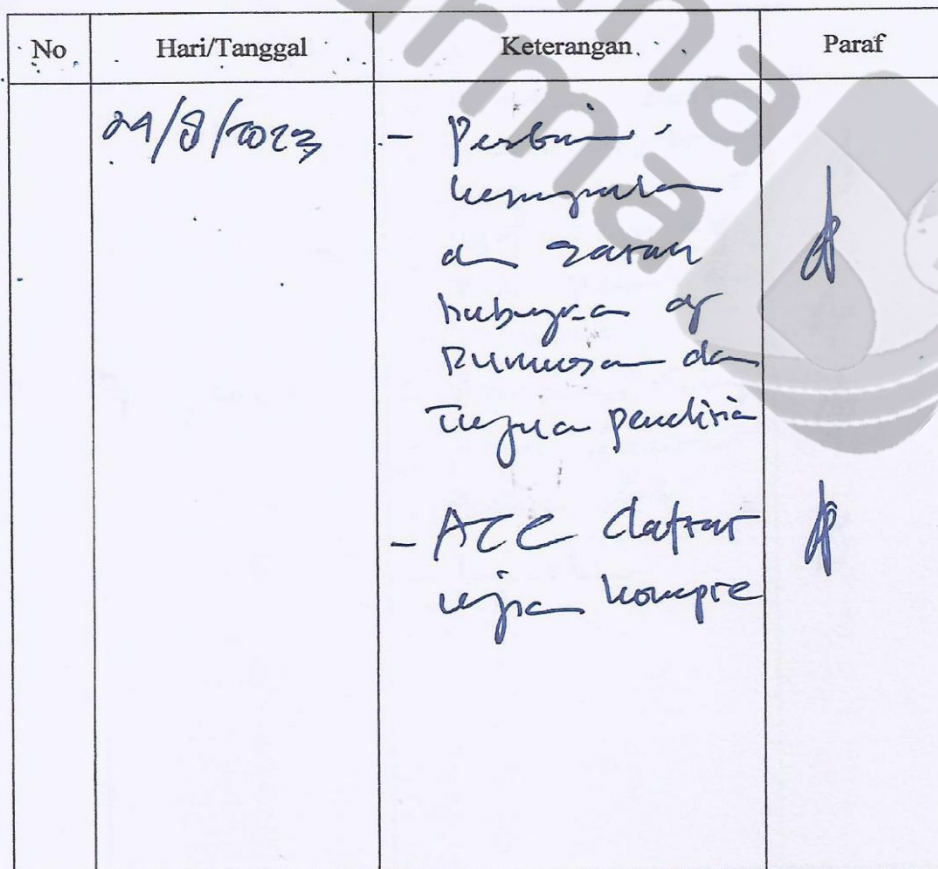 No Hari/Tanggal Keterangan Paraf
24/8/2023 - Perbaiki
kesimpulan
dan saran
hubungkan dg
Rumusan dan
Tujuan penelitian
- ACC daftar
ujian kompre
na
arma